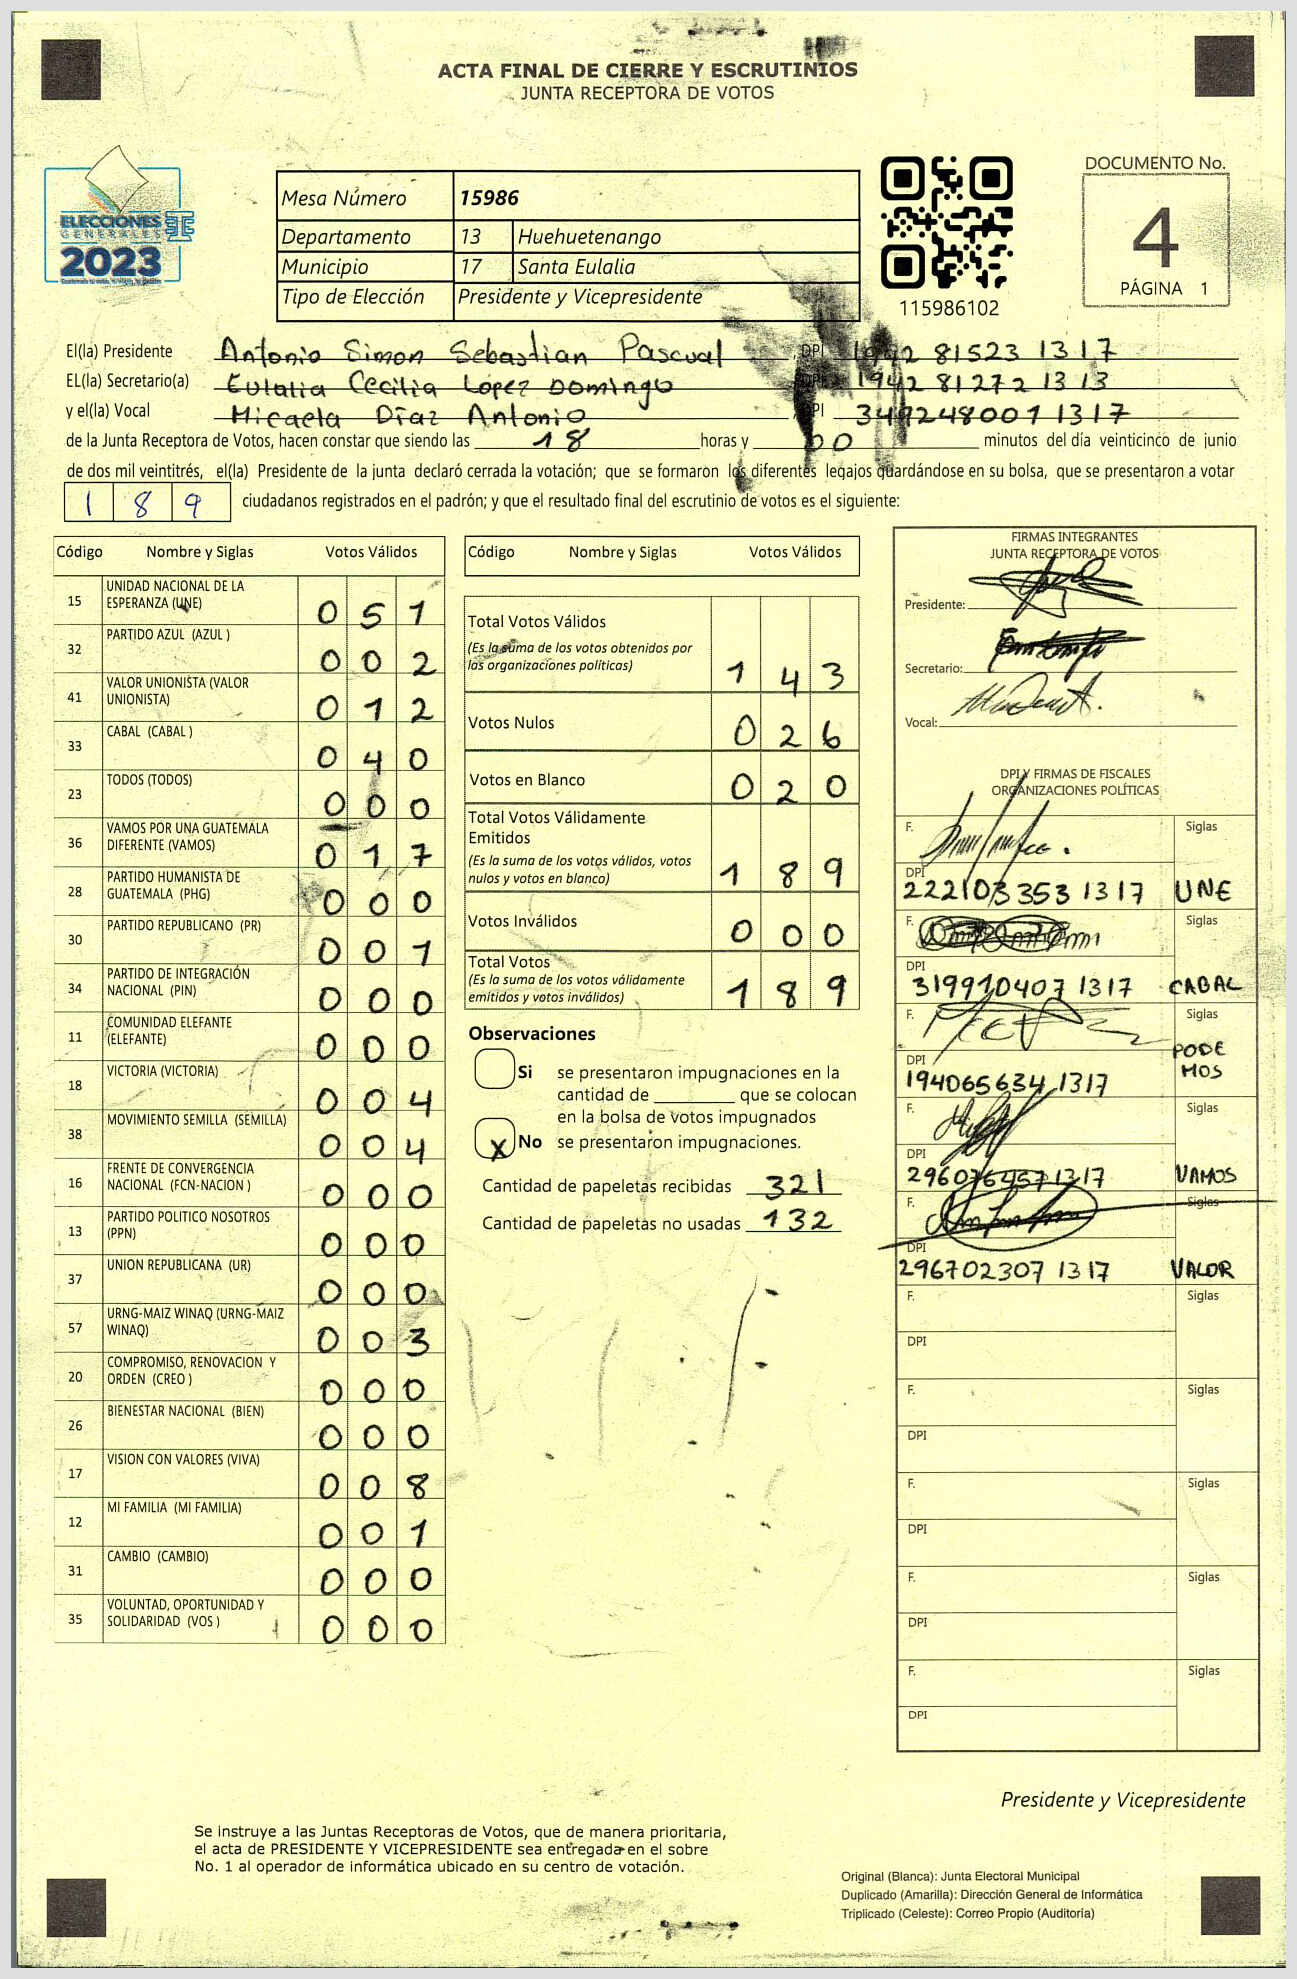 ACTA FINAL DE CIERRE Y ESCRUTINIOS
JUNTA RECEPTORA DE VOTOS
ELECCIONES
GENERALES
2023
Mesa Número 15986
Departamento 13 Huehuetenango
Municipio 17 Santa Eulalia
Tipo de Elección Presidente y Vicepresidente
115986102
DOCUMENTO No.
4
PÁGINA 1
El(la) Presidente Antonio Simon Sebastian Pascual , DPI 1942 81523 1317
EL(la) Secretario(a) Eulalia Cecilia López Domingo DPI 1942 81272 1313
y el(la) Vocal Micaela Díaz Antonio , DPI 349248001 1317
de la Junta Receptora de Votos, hacen constar que siendo las 18 horas y 00 minutos del día veinticinco de junio
de dos mil veintitrés, el(la) Presidente de la junta declaró cerrada la votación; que se formaron los diferentes legajos guardándose en su bolsa, que se presentaron a votar
189 ciudadanos registrados en el padrón; y que el resultado final del escrutinio de votos es el siguiente:
Código Nombre y Siglas Votos Válidos
15 UNIDAD NACIONAL DE LA ESPERANZA (UNE) 051
32 PARTIDO AZUL (AZUL ) 002
41 VALOR UNIONISTA (VALOR UNIONISTA) 012
33 CABAL (CABAL ) 040
23 TODOS (TODOS) 000
36 VAMOS POR UNA GUATEMALA DIFERENTE (VAMOS) 017
28 PARTIDO HUMANISTA DE GUATEMALA (PHG) 000
30 PARTIDO REPUBLICANO (PR) 001
34 PARTIDO DE INTEGRACIÓN NACIONAL (PIN) 000
11 COMUNIDAD ELEFANTE (ELEFANTE) 000
18 VICTORIA (VICTORIA) 004
38 MOVIMIENTO SEMILLA (SEMILLA) 004
16 FRENTE DE CONVERGENCIA NACIONAL (FCN-NACION ) 000
13 PARTIDO POLITICO NOSOTROS (PPN) 000
37 UNION REPUBLICANA (UR) 000
57 URNG-MAIZ WINAQ (URNG-MAIZ WINAQ) 003
20 COMPROMISO, RENOVACION Y ORDEN (CREO ) 000
26 BIENESTAR NACIONAL (BIEN) 000
17 VISION CON VALORES (VIVA) 008
12 MI FAMILIA (MI FAMILIA) 001
31 CAMBIO (CAMBIO) 000
35 VOLUNTAD, OPORTUNIDAD Y SOLIDARIDAD (VOS ) 000
Código Nombre y Siglas Votos Válidos
Total Votos Válidos
(Es la suma de los votos obtenidos por
las organizaciones políticas) 143
Votos Nulos 026
Votos en Blanco 020
Total Votos Válidamente
Emitidos
(Es la suma de los votos válidos, votos
nulos y votos en blanco) 189
Votos Inválidos 000
Total Votos
(Es la suma de los votos válidamente
emitidos y votos inválidos) 189
Observaciones
Si se presentaron impugnaciones en la
cantidad de ________ que se colocan
en la bolsa de votos impugnados
x No se presentaron impugnaciones.
Cantidad de papeletas recibidas 321
Cantidad de papeletas no usadas 132
FIRMAS INTEGRANTES
JUNTA RECEPTORA DE VOTOS
Presidente:
Secretario:
Vocal:
DPI Y FIRMAS DE FISCALES
ORGANIZACIONES POLÍTICAS
F. Siglas
DPI
222103353 1317 UNE
F. Siglas
DPI
319910407 1317 CABAL
F. Siglas
DPI
194065634 1317 PODEMOS
F. Siglas
DPI
296076457 1317 VAMOS
F. Siglas
DPI
296702307 1317 VALOR
F. Siglas
DPI
F. Siglas
DPI
F. Siglas
DPI
F. Siglas
DPI
F. Siglas
DPI
Presidente y Vicepresidente
Se instruye a las Juntas Receptoras de Votos, que de manera prioritaria,
el acta de PRESIDENTE Y VICEPRESIDENTE sea entregada en el sobre
No. 1 al operador de informática ubicado en su centro de votación.
Original (Blanca): Junta Electoral Municipal
Duplicado (Amarilla): Dirección General de Informática
Triplicado (Celeste): Correo Propio (Auditoría)